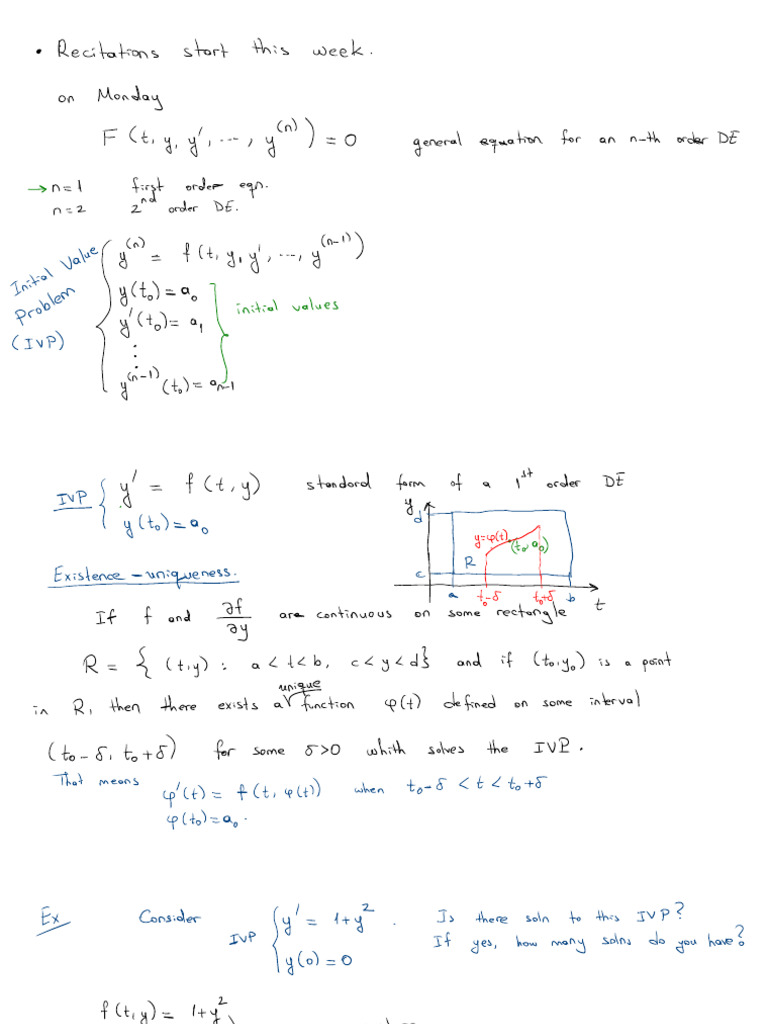 • Recitations start this week.
on Monday
F(t, y, y', ..., y^(n)) = 0 general equation for an n-th order DE
→ n=1 first order eqn.
n=2 2nd order DE.
Initial Value Problem (IVP)
y^(n) = f(t, y, y', ..., y^(n-1))
y(t₀) = a₀
y'(t₀) = a₁
⋮
y^(n-1)(t₀) = a_n-1
initial values
IVP { y' = f(t, y) standard form of a 1st order DE
y(t₀) = a₀
y
d
y=φ(t)
(t₀, a₀)
R
c
a t₀-δ t₀+δ b t
Existence-uniqueness.
If f and ∂f/∂y are continuous on some rectangle
R = { (t,y) : a < t < b, c < y < d} and if (t₀,y₀) is a point
in R, then there exists a unique function φ(t) defined on some interval
(t₀-δ, t₀+δ) for some δ>0 whith solves the IVP.
That means φ'(t) = f(t, φ(t)) when t₀-δ < t < t₀+δ
φ(t₀) = a₀.
Ex Consider IVP { y' = 1+y² . Is there soln to this IVP?
y(0) = 0 If yes, how many solns do you have?
f(t,y) = 1+y²